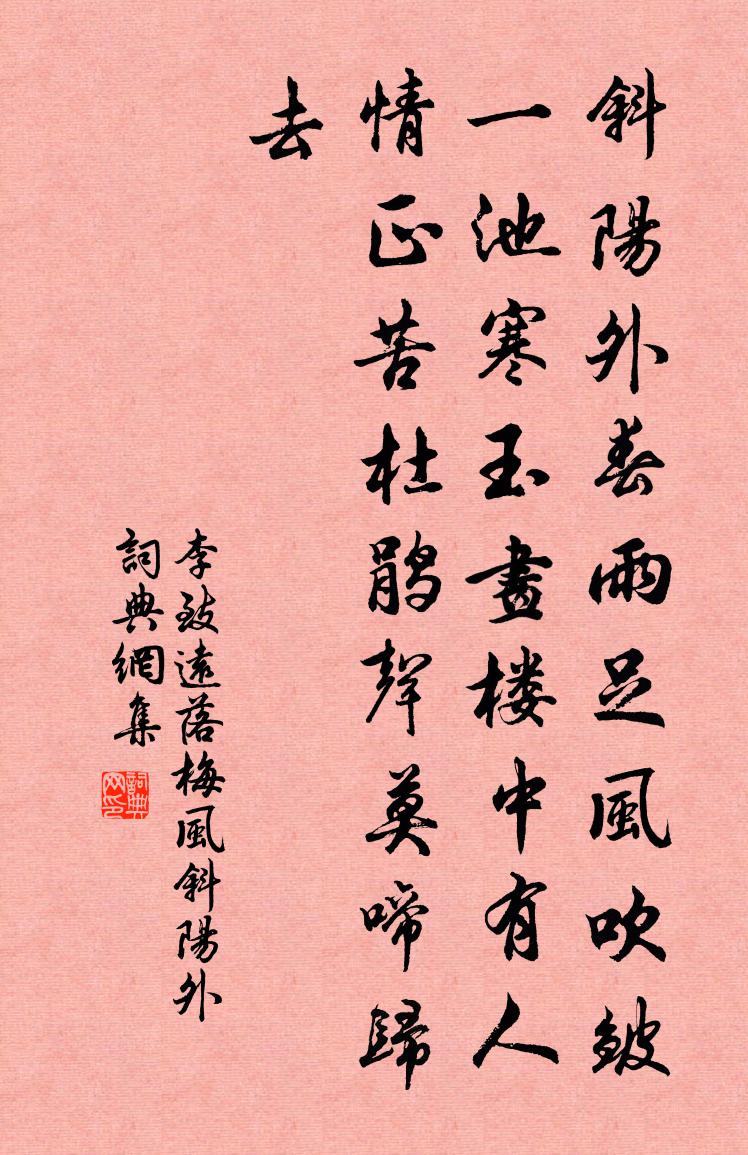 斜陽外春雨足風吹皺
一池寒玉畫楼中有人
情正苦杜鹃聲莫啼歸
去
李致遠落梅風斜陽外
詞典網集
詞典網印